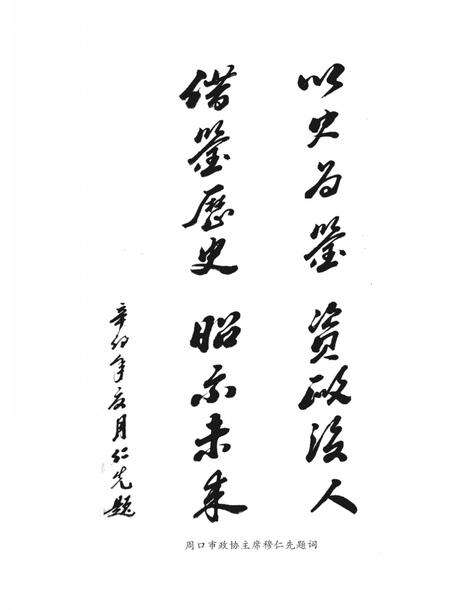 以史为鉴 资政後人
借鉴歷史 昭示未来
辛卯年月仁先题
周口市政协主席穆仁先题词